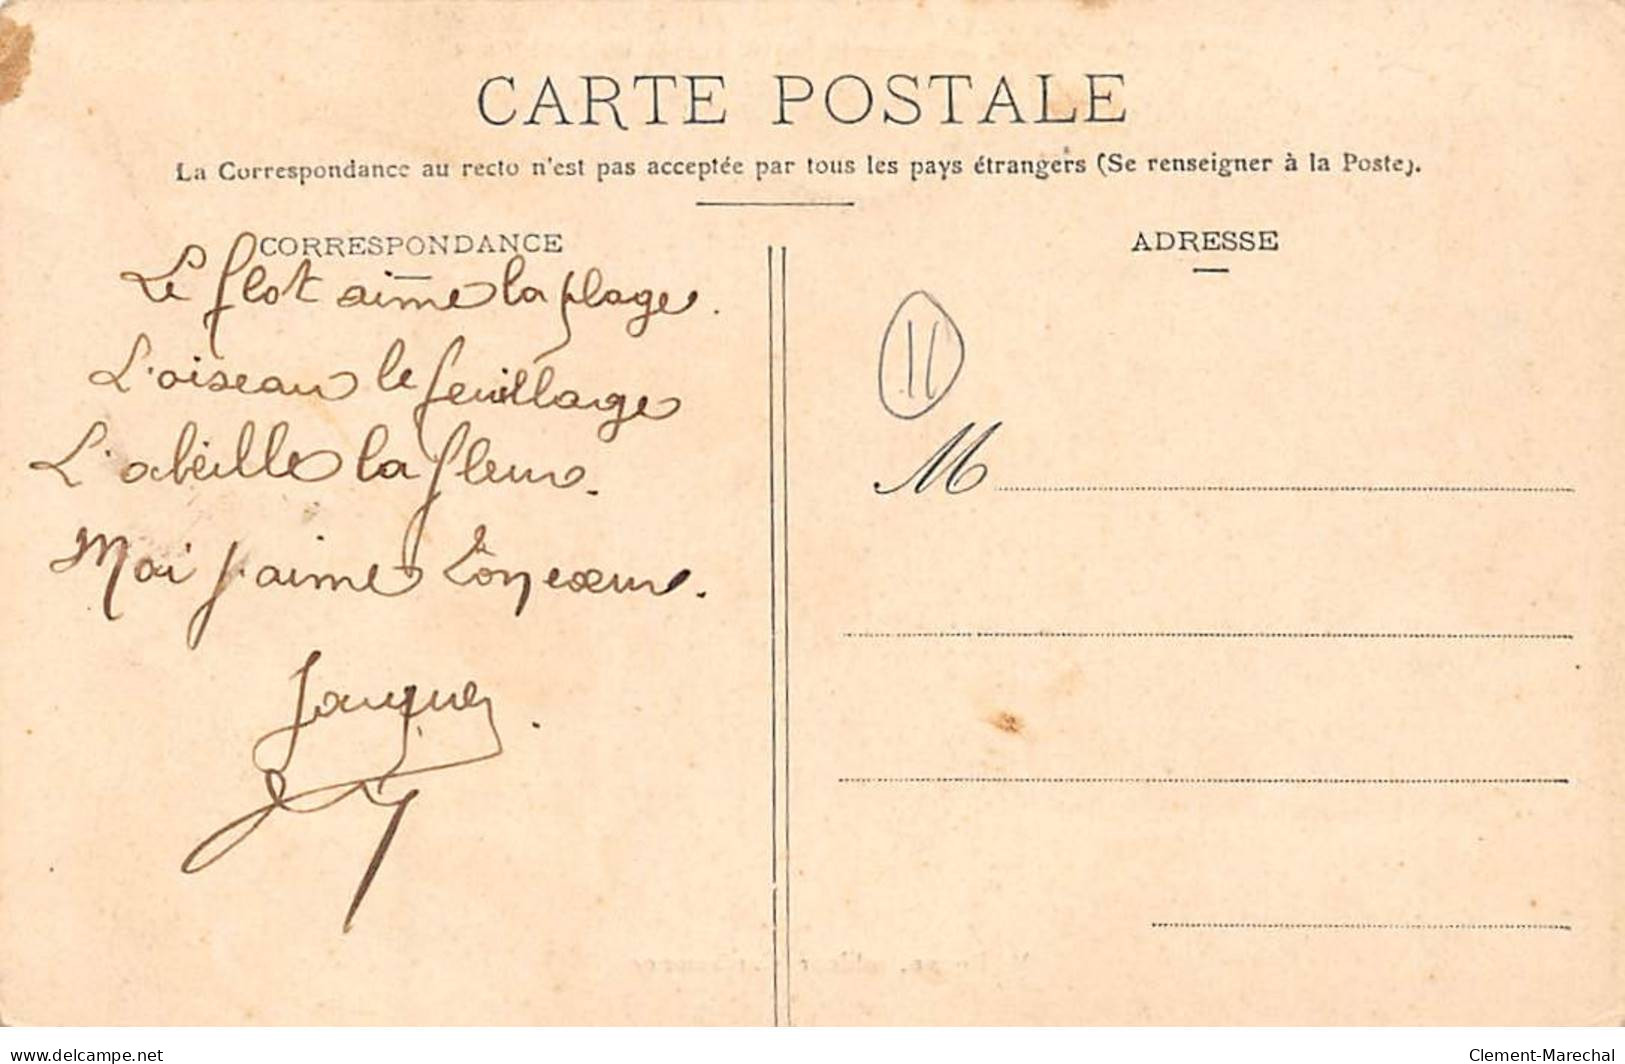 CARTE POSTALE
La Correspondance au recto n'est pas acceptée par tous les pays étrangers (Se renseigner à la Poste).
CORRESPONDANCE
Le flot aime la plage.
L'oiseau le feuillage
L'abeille la fleur.
Moi j'aime ton cœur.
Jacques.
ADRESSE
11
M
delcampe.net
Clement-Marechal